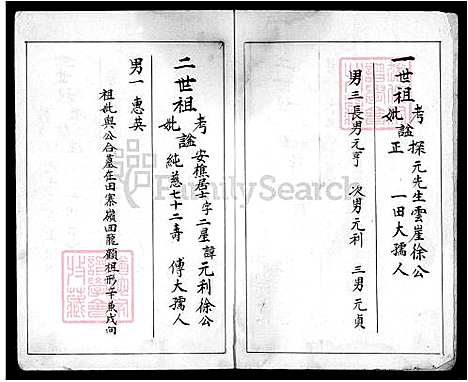 一世祖
考 探元先生雲崖徐公
妣 謚 正 一田大孺人
男三 長男元亨 次男元利 三男元貞
二世祖
考 安樵居士字二星諱元利徐公
妣 謚 純慈七十二壽 傅大孺人
男一 惠英
祖妣與公合墓在田寨嶺回龍顧祖形辛兼戌向
FamilySearch